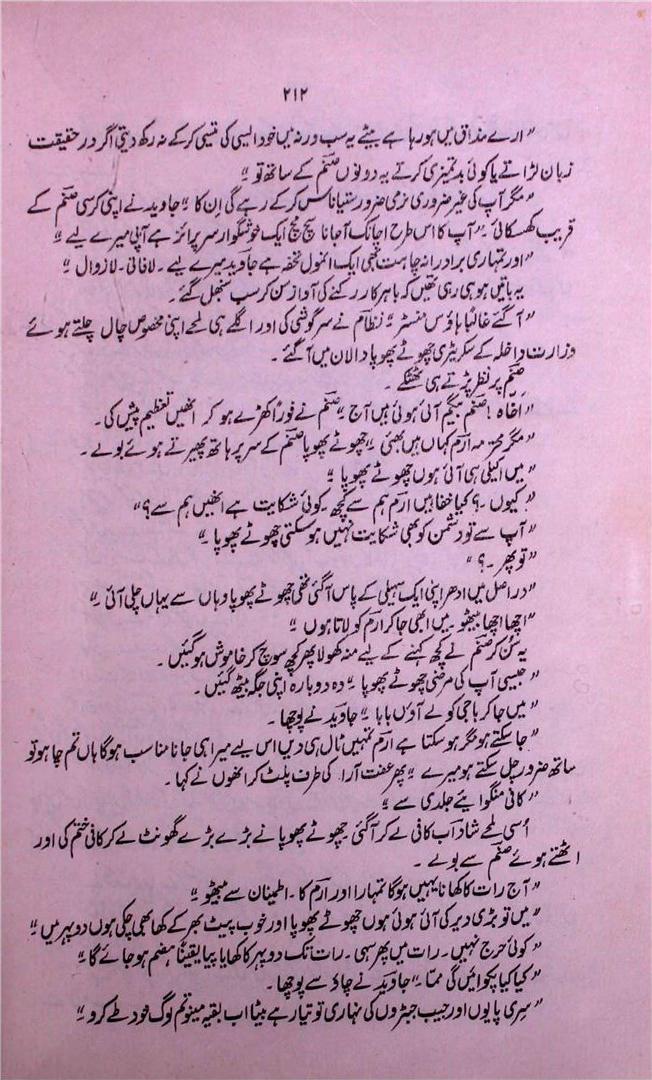 ۲۱۲
”ارے مذاق میں ہو رہا ہے بیٹے یہ سب ورنہ میں خود ایسی کی تیسی کرکے نہ رکھ دیتی اگر درحقیقت
زبان لڑاتے یا کوئی بدتمیزی کرتے یہ دونوں صنم کے ساتھ تو ۔“
”مگر آپ کی غیر ضروری نرمی ضرور ستیاناس کرکے رہے گی اِن کا ۔“ جاوید نے اپنی کرسی صنم کے
قریب کھسکائی ۔ ”آپ کا اس طرح اچانک آجانا سچ مچ ایک خوشگوار سرپرائز ہے آپی میرے لیے ۔“
”اور تمہاری برادرانہ چاہت بھی ایک انمول تحفہ ہے جاوید میرے لیے ۔ لافانی ۔ لازوال ۔“
یہ باتیں ہو ہی رہی تھیں کہ باہر کار رکنے کی آواز سن کر سب سنبھل گئے ۔
”آگئے غالباً ہاؤس منسٹر ۔“ نظام نے سرگوشی کی اور اگلے ہی لمحے اپنی مخصوص چال چلتے ہوئے
وزارت داخلہ کے سکریٹری چھوٹے پھوپا دالان میں آگئے ۔
صنم پر نظر پڑتے ہی ٹھٹکے ۔
”اخاہ! صنم بیگم آئی ہوئی ہیں آج ۔“ صنم نے فوراً کھڑے ہو کر انھیں تعظیم پیش کی ۔
”مگر محترمہ ارم کہاں ہیں بھئی ۔“ چھوٹے پھوپا صنم کے سر پر ہاتھ پھیرتے ہوئے بولے ۔
”میں اکیلی ہی آئی ہوں چھوٹے پھوپا ۔“
”کیوں ۔؟ کیا خفا ہیں ارم ہم سے کچھ ۔ کوئی شکایت ہے انھیں ہم سے؟“
”آپ سے تو دشمن کو بھی شکایت نہیں ہوسکتی چھوٹے پھوپا ۔“
”تو پھر ۔؟“
”دراصل میں ادھر اپنی ایک سہیلی کے پاس آگئی تھی چھوٹے پھوپا وہاں سے یہاں چلی آئی ۔“
”اچھا اچھا بیٹھو ۔ میں ابھی جاکر ارم کو لاتا ہوں ۔“
یہ سُن کر صنم نے کچھ کہنے کے لیے منہ کھولا پھر کچھ سوچ کر خاموش ہوگئیں ۔
”جیسی آپ کی مرضی چھوٹے پھوپا ۔“ وہ دوبارہ اپنی جگہ بیٹھ گئیں ۔
”میں جاکر باجی کو لے آؤں بابا ۔“ جاوید نے پوچھا ۔
”جاسکتے ہو مگر ہوسکتا ہے ارم تمہیں ٹال ہی دیں اس لیے میرا ہی جانا مناسب ہوگا ہاں تم چاہو تو
ساتھ ضرور چل سکتے ہو میرے ۔“ پھر عفت آرا کی طرف پلٹ کر انھوں نے کہا ۔
”کافی منگوایئے جلدی سے ۔“
اُسی لمحے شاداب کافی لے کر آگئی ۔ چھوٹے پھوپا نے بڑے بڑے گھونٹ لے کر کافی ختم کی اور
اٹھتے ہوئے صنم سے بولے ۔
”آج رات کا کھانا یہیں ہوگا تمہارا اور ارم کا ۔ اطمینان سے بیٹھو ۔“
”میں تو بڑی دیر کی آئی ہوئی ہوں چھوٹے پھوپا اور خوب پیٹ بھر کے کھا بھی چکی ہوں دوپہر میں ۔“
”کوئی حرج نہیں ۔ رات میں پھر سہی ۔ رات تک دوپہر کا کھایا پیا یقیناً ہضم ہو جائے گا ۔“
”کیا کیا پکوائیں گی ممّا ۔“ جاوید نے چاؤ سے پوچھا ۔
”سری پایوں اور جیب جبڑوں کی نہاری تو تیار ہے بیٹا اب بقیہ مینو تم لوگ خود طے کرو ۔“